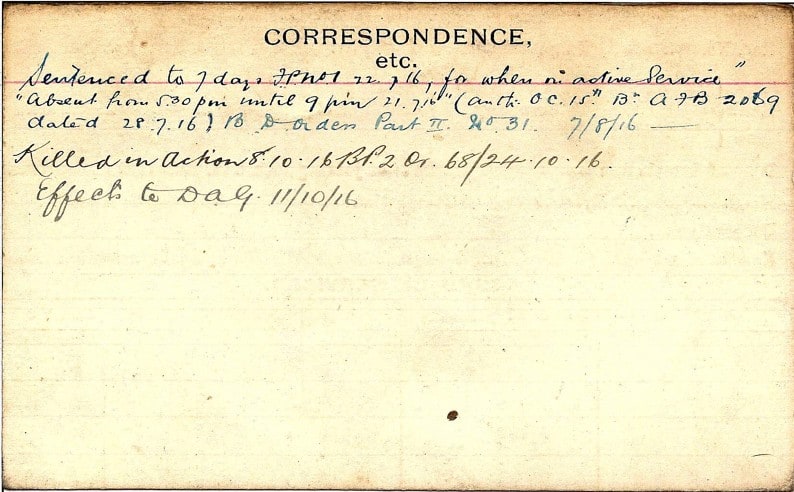 CORRESPONDENCE,
etc.
Sentenced to 7 days F.P. No 1 22.7.16, for when on active Service"
"Absent from 5.30 pm until 9 pm 21.7.16" (auth. O.C. 15th Bn A F B 2069
dated 28.7.16) B D orders Part II. No 31. 7/8/16 —
Killed in Action 8.10.16 B P. 2 Or. 68/24.10.16.
Effects to D A G. 11/10/16